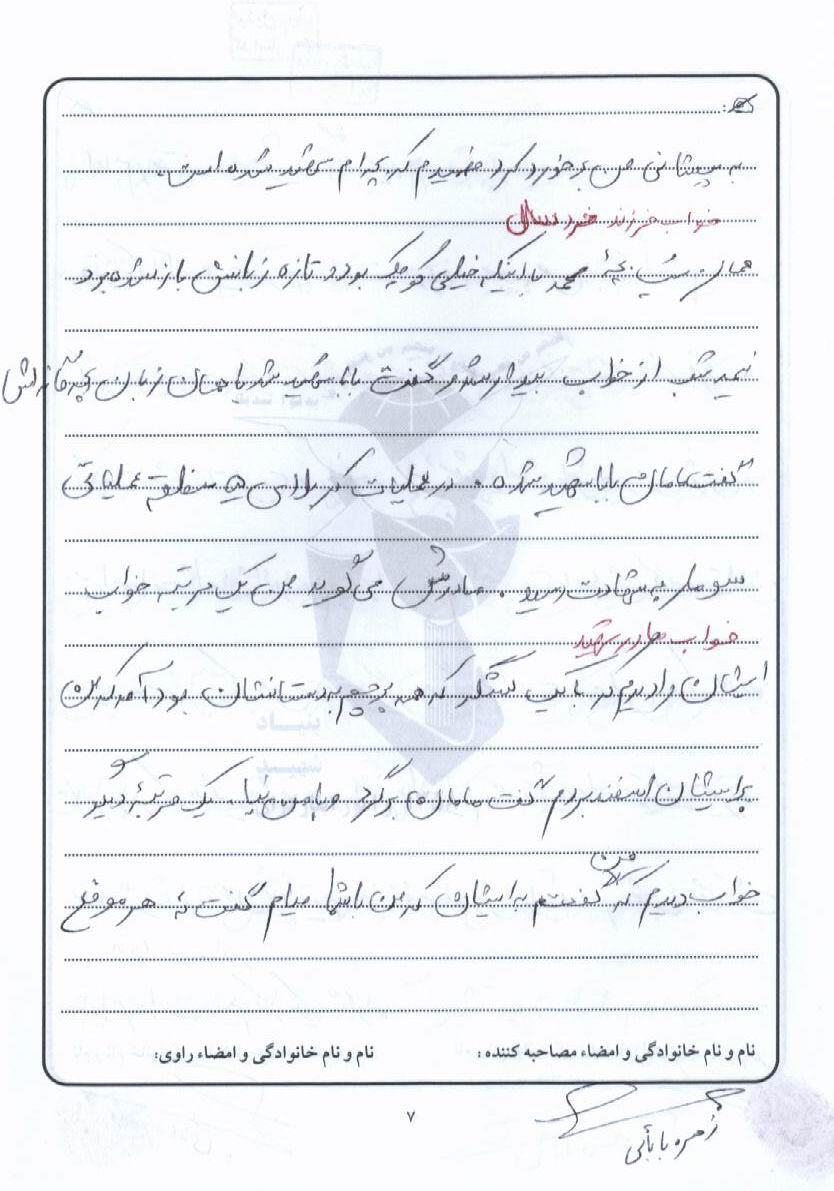 به پیشانی من برخورد کرد فهمیدم که پدرام شهید شده است.
خواب فرزند خردسال
همان شب بچهٔ محمد با اینکه خیلی کوچک بود و تازه زبانش باز شده بود
نیمه شب از خواب بیدار شد و گفت بابا شهید شد با همان زبان بچه‌گانه‌اش
گفت مامان بابا شهید شده. در عملیات کربلای منطقه عملیاتی
سومار به شهادت رسید. مادرش می‌گوید من یک مرتبه خواب
خواب مادر شهید
ایشان را دیدم با یک لشگر که همه پرچم به دستانشان بود آمد که من
برای ایشان اسفند بردم گفت مامان برگرد با من نیا. یک مرتبهٔ دیگر
خواب دیدم که من گفتم به ایشان که من با شما میام گفت نه هر موقع
نام و نام خانوادگی و امضاء مصاحبه کننده :
نام و نام خانوادگی و امضاء راوی:
زهره بابائی
۷